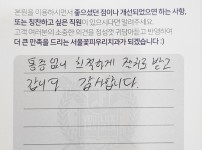 본원을 이용하시면서 좋으셨던 점이나 개선되었으면 하는 사항,
또는 칭찬하고 싶은 직원이 있으시다면 알려주세요.
고객 여러분의 소중한 의견을 정성껏 귀담아듣고 반영하여
더 큰 만족을 드리는 서울꽃피우리치과가 되겠습니다 :)
통증 없이 쾌적하게 잔치료 받고
갑니다 감사합니다.